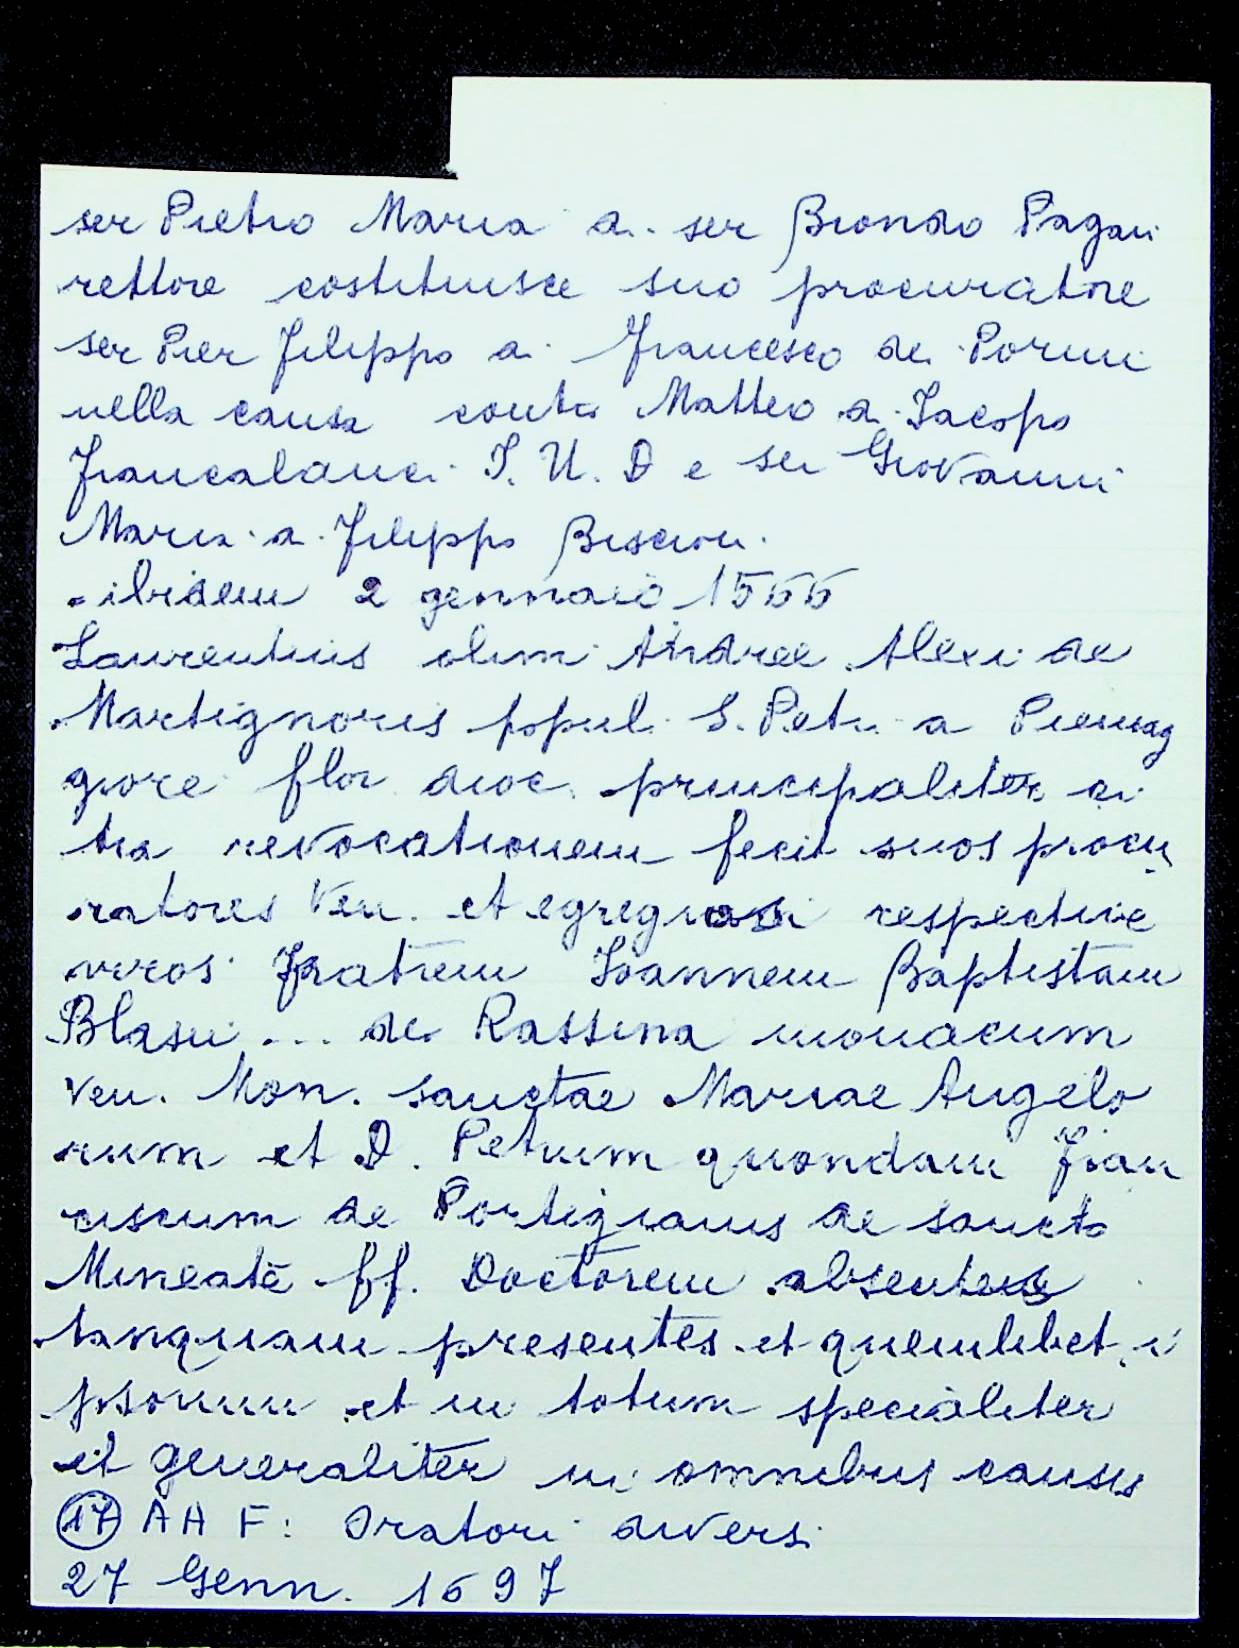 ser Pietro Maria di ser Biondo Pagani
rettore costituisce suo procuratore
ser Pier Filippo di Francesco de Porini
nella causa contro Matteo di Jacopo
Francalanci J. U. D e ser Giovanni
Maria di Filippo Biscioni.
ibidem 2 gennaio 1566
Laurentius olim Andree Alexi de
Martignonis popul. S. Petri a Piemag
giore flor dioc. principaliter ci
tra revocationem fecit suos procu
ratores Ven. et egregios respective
viros Fratrem Joannem Baptistam
Blasii ... de Rassina monacum
Ven. Mon. sanctae Mariae Angelo
rum et D. Petrum quondam Fran
ciscum de Portigianis de sancto
Mineate ff. Doctorem absentes
tanquam presentes et quemlibet i
psorum et in totum specialiter
et generaliter in omnibus causis
(17) A A F: Oratori diversi
27 Genn. 1697